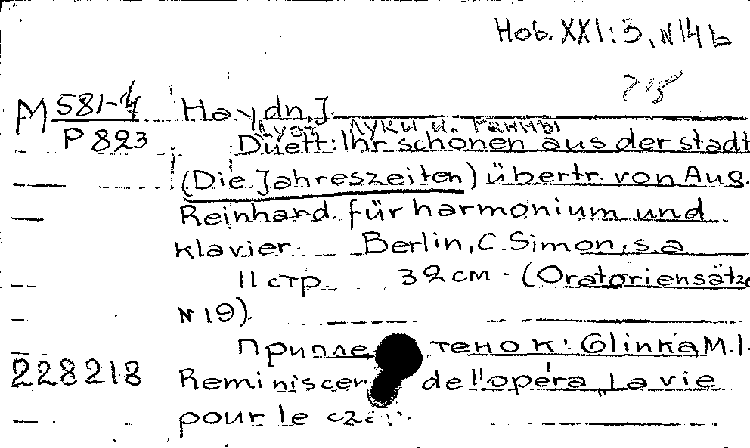 Hob. XXI:3, N14b
M 581-4
P 823
Haydn, J.
Луки и Ганны
Duett: Ihr schönen aus der stadt
(Die Jahreszeiten) übertr. von Aug.
Reinhard für harmonium und
klavier. Berlin, C. Simon, s.a
11 стр. 32 см. (Oratoriensätze
N 19).
Припле тено к: Glinka, M.I.
228218
Reminiscen de l'opéra "La vie
pour le czar"